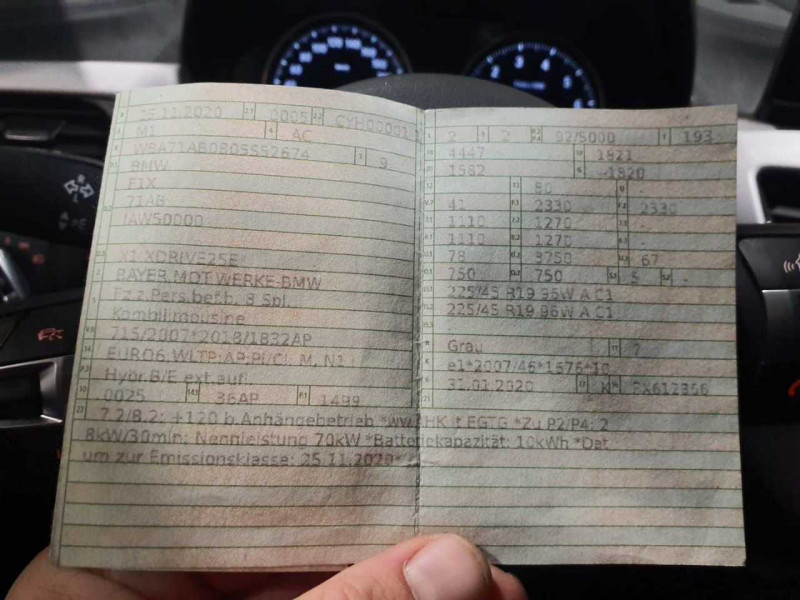 25.11.2020 0005 CYH00001
M1 AC
WBA71AB0805S52674 9
BMW
F1X
71AB
IAW50000
X1 XDRIVE25E
BAYER.MOT.WERKE-BMW
Fz.z.Pers.bef.b. 8 Spl.
Kombilimousine
715/2007*2018/1832AP
EURO6;WLTP;AP;PI/CI; M, N1 I
Hybr.B/E ext.aufl.
0025 36AP 1499
2 2 92/5000 193
4447 1821
1582 -1820
80 -
41 2330 2330
1110 1270 -
1110 1270 -
78 3750 67
750 750 5 -
225/45 R19 96W A C1
225/45 R19 96W A C1
Grau 7
e1*2007/46*1676*10
31.01.2020 K PX612366
7.2/8.2: +120 b.Anhängebetrieb *ww.AHK lt.EGTG *Zu P2/P4: 2
8kW/30min; Nennleistung 70kW *Batteriekapazität: 10kWh *Dat
um zur Emissionsklasse: 25.11.2020*
2 3 4